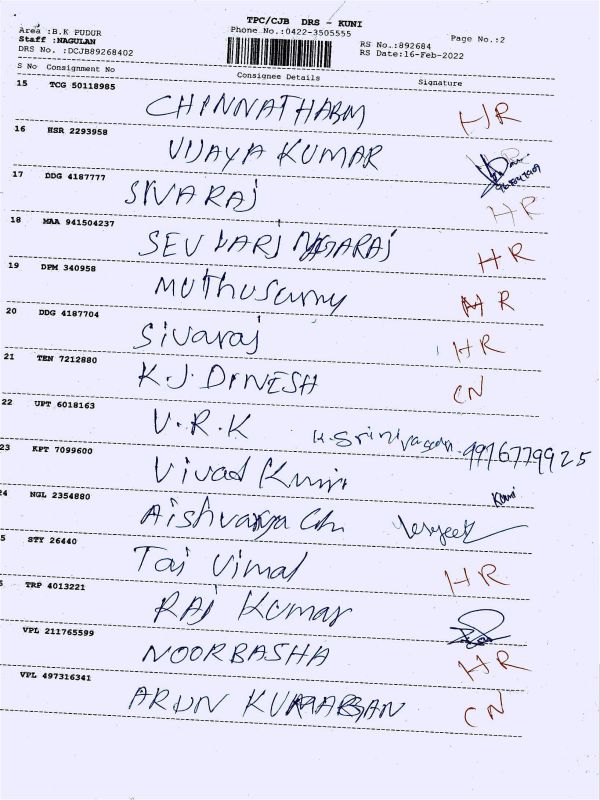 TPC/CJB DRS - KUNI
Area :B.K PUDUR Phone No.:0422-3505555 Page No.:2
Staff :NAGULAN RS No.:892684
DRS No. :DCJB89268402 RS Date:16-Feb-2022
S No Consignment No Consignee Details Signature
15 TCG 50118985
CHINNATHABM HR
16 HSR 2293958
VIJAYA KUMAR
17 DDG 4187777
SIVARAJ HR
18 MAA 941504237
NAGARAJ HR
19 DPM 340958
Muthusamy HR
20 DDG 4187704
Sivaraj HR
21 TEN 7212880
K.J. DINESH CN
22 UPT 6018163
V.R.K K. Srinivasan. 9976779925
23 KPT 7099600
24 NGL 2354880
Aishvarya
5 STY 26440
Tai Vimal HR
6 TRP 4013221
RAJ Kumar
VPL 211765599
NOORBASHA HR
VPL 497316341
ARUN CN